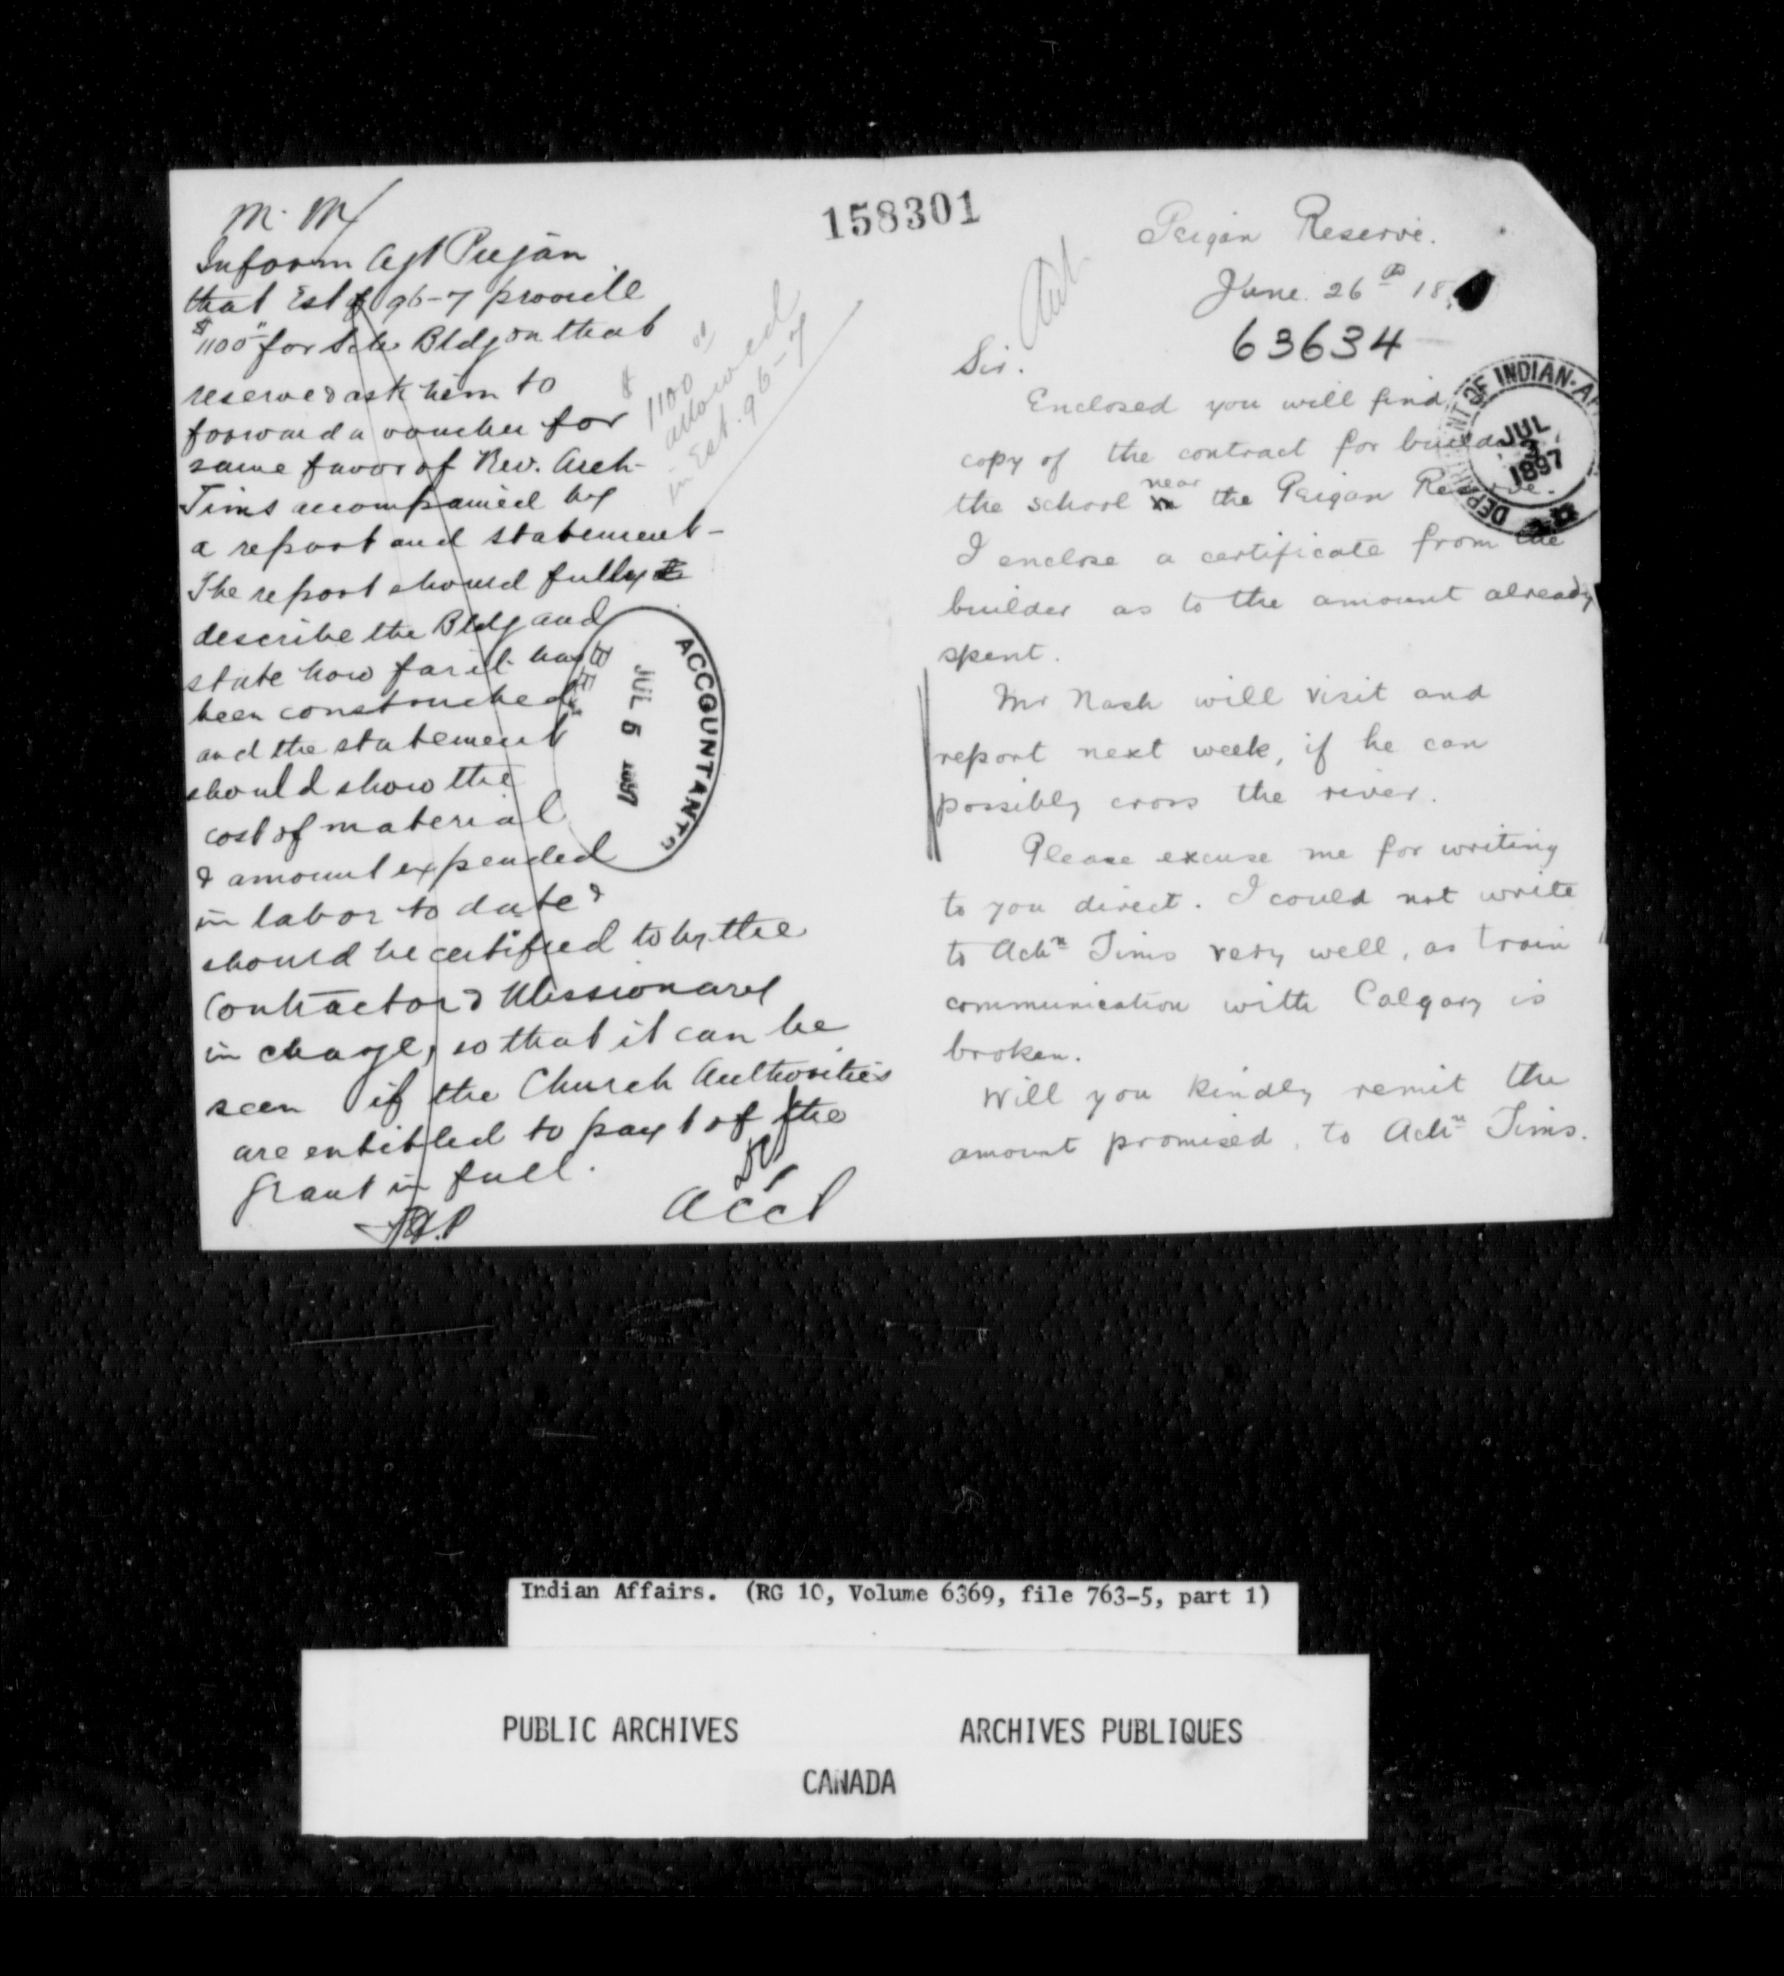 158301
M. M
Inform Agt Piegan
that Est of 96-7 provide
$1100 for Sch Bldg on that
reserve & ask him to
forward a voucher for
same favor of Rev. Arch-
Tims accompanied by
a report and statement-
The report should fully
describe the Bldg and
state how far it has
been constructed
and the statement
should show the
cost of material
& amount expended
in labor to date &
should be certified to by the
Contractor & Missionary
in charge, so that it can be
seen if the Church Authorities
are entitled to payt of the
Grant in full.
Acct
$1100 00
allowed
in Est. 96-7
ACCOUNTANT
JUL 5 1897
Peigan Reserve.
June 26th 18
63634
DEPARTMENT OF INDIAN-AF
JUL
3
1897
Sir.
Enclosed you will find
copy of the contract for building
the school near the Peigan Reserve.
I enclose a certificate from the
builder as to the amount already
spent.
Mr Nash will visit and
report next week, if he can
possibly cross the river.
Please excuse me for writing
to you direct. I could not write
to Achn Tims very well, as train
communication with Calgary is
broken.
Will you kindly remit the
amount promised, to Achn Tims.
Indian Affairs. (RG 10, Volume 6369, file 763-5, part 1)
PUBLIC ARCHIVES ARCHIVES PUBLIQUES
CANADA